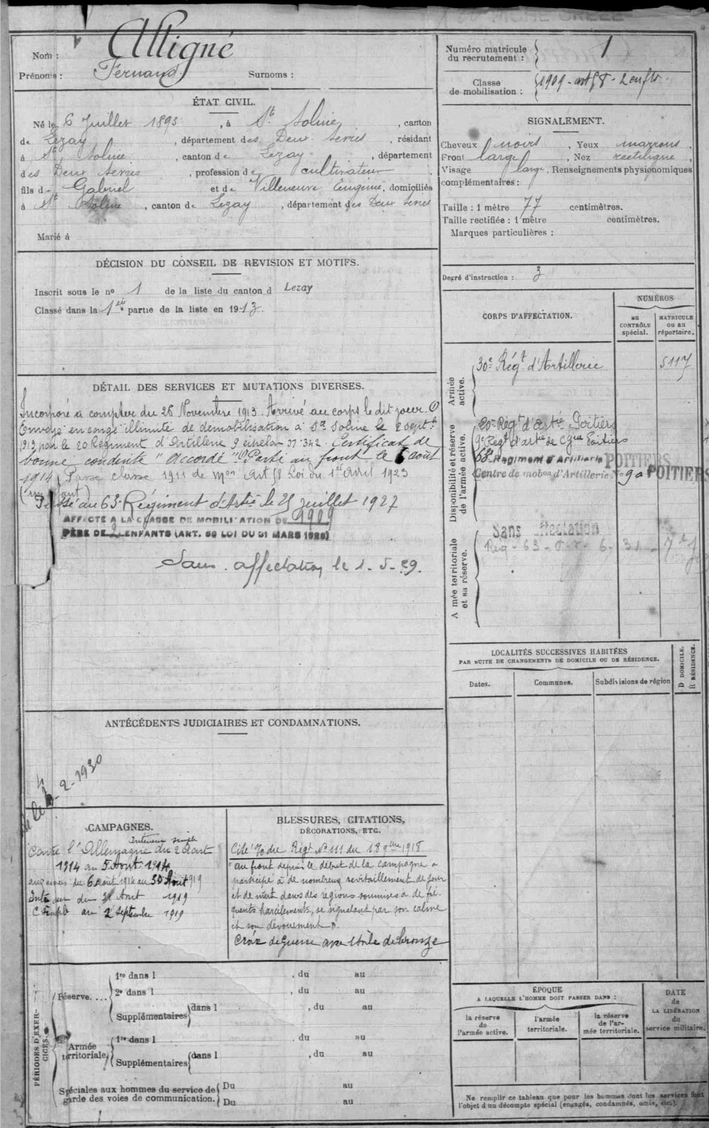 Nom : Alligné
Prénoms : Fernand Surnoms :
ÉTAT CIVIL.
Né le 6 Juillet 1893, à St Soline, canton
de Lezay, département des Deux Sèvres, résidant
à St Soline, canton de Lezay, département
des Deux Sèvres, profession de cultivateur
fils de Gabriel et de Villeneuve Eugénie, domiciliés
à St Soline, canton de Lezay, département des Deux Sèvres
Marié à
DÉCISION DU CONSEIL DE REVISION ET MOTIFS.
Inscrit sous le no 1 de la liste du canton d Lezay
Classé dans la 1re partie de la liste en 1913
DÉTAIL DES SERVICES ET MUTATIONS DIVERSES.
Incorporé à compter du 26 Novembre 1913. Arrivé au corps le dit jour.
Envoyé en congé illimité de démobilisation à Ste Soline le 2 Sept
1919 par le 20 Régiment d'Artillerie 9 échelon 37.342. Certificat de
bonne conduite "Accordé" Parti au front le 6 août
1914. Passé classe 1911 de mon Art 58 Loi du 1er Avril 1923
(un enfant)
Passé au 63 Régiment d'Artie le 25 juillet 1927
AFFECTÉ A LA CLASSE DE MOBILISATION DE 1909
PÈRE DE 2 ENFANTS (ANT. 58 LOI DU 31 MARS 1928)
Sans affectation le 1-5-29.
ANTÉCÉDENTS JUDICIAIRES ET CONDAMNATIONS.
2-1930
CAMPAGNES.
Intérieur simple
Contre l'Allemagne du 2 Aout
1914 au 5 Aout 1914
aux armées du 6 Aout 1914 au 30 Aout 1919
Intérieur du 31 Aout 1919
au 2 Septembre 1919
BLESSURES, CITATIONS,
DÉCORATIONS, ETC.
Cité à l'o du Régt No 111 du 18 9bre 1918
au front depuis le début de la campagne a
participé à de nombreux ravitaillements de jour
et de nuit dans des régions soumises à de fré
quents harcèlements, se signalant par son calme
et son dévouement.
Croix de Guerre avec étoile de bronze
PÉRIODES D'EXERCICES.
Réserve....
1re dans l , du au
2e dans l , du au
Supplémentaires dans l , du au
, du au
Armée territoriale.
1re dans l , du au
Supplémentaires dans l , du au
, du au
Spéciales aux hommes du service de garde des voies de communication.
Du au
Du au
Numéro matricule du recrutement : 1
Classe de mobilisation : 1909 - art 58 - 2 enfts
SIGNALEMENT.
Cheveux noirs, Yeux marrons
Front large, Nez rectiligne
Visage large, Renseignements physionomiques
complémentaires :
Taille : 1 mètre 77 centimètres.
Taille rectifiée : 1 mètre centimètres.
Marques particulières :
Degré d'instruction : 3
CORPS D'AFFECTATION.
NUMÉROS
AU CONTRÔLE spécial.
MATRICULE OU AU répertoire.
Armée active.
30e Régt d'Artillerie 5117
Disponibilité et réserve de l'armée active.
20 Regt d'arté Poitiers
9e Regt d'arté de Cgne Poitiers
63e Regiment d'Artillerie POITIERS
Centre de mobon d'Artillerie No 9 POITIERS
Armée territoriale et sa réserve.
Sans affectation
LOCALITÉS SUCCESSIVES HABITÉES
PAR SUITE DE CHANGEMENTS DE DOMICILE OU DE RÉSIDENCE.
Dates. Communes. Subdivisions de région D DOMICILE. R RÉSIDENCE.
ÉPOQUE
A LAQUELLE L'HOMME DOIT PASSER DANS :
la réserve de l'armée active.
l'armée territoriale.
la réserve de l'armée territoriale.
DATE de LA LIBÉRATION du service militaire.
Ne remplir ce tableau que pour les hommes dont les services font
l'objet d'un décompte spécial (engagés, condamnés, omis, etc.)